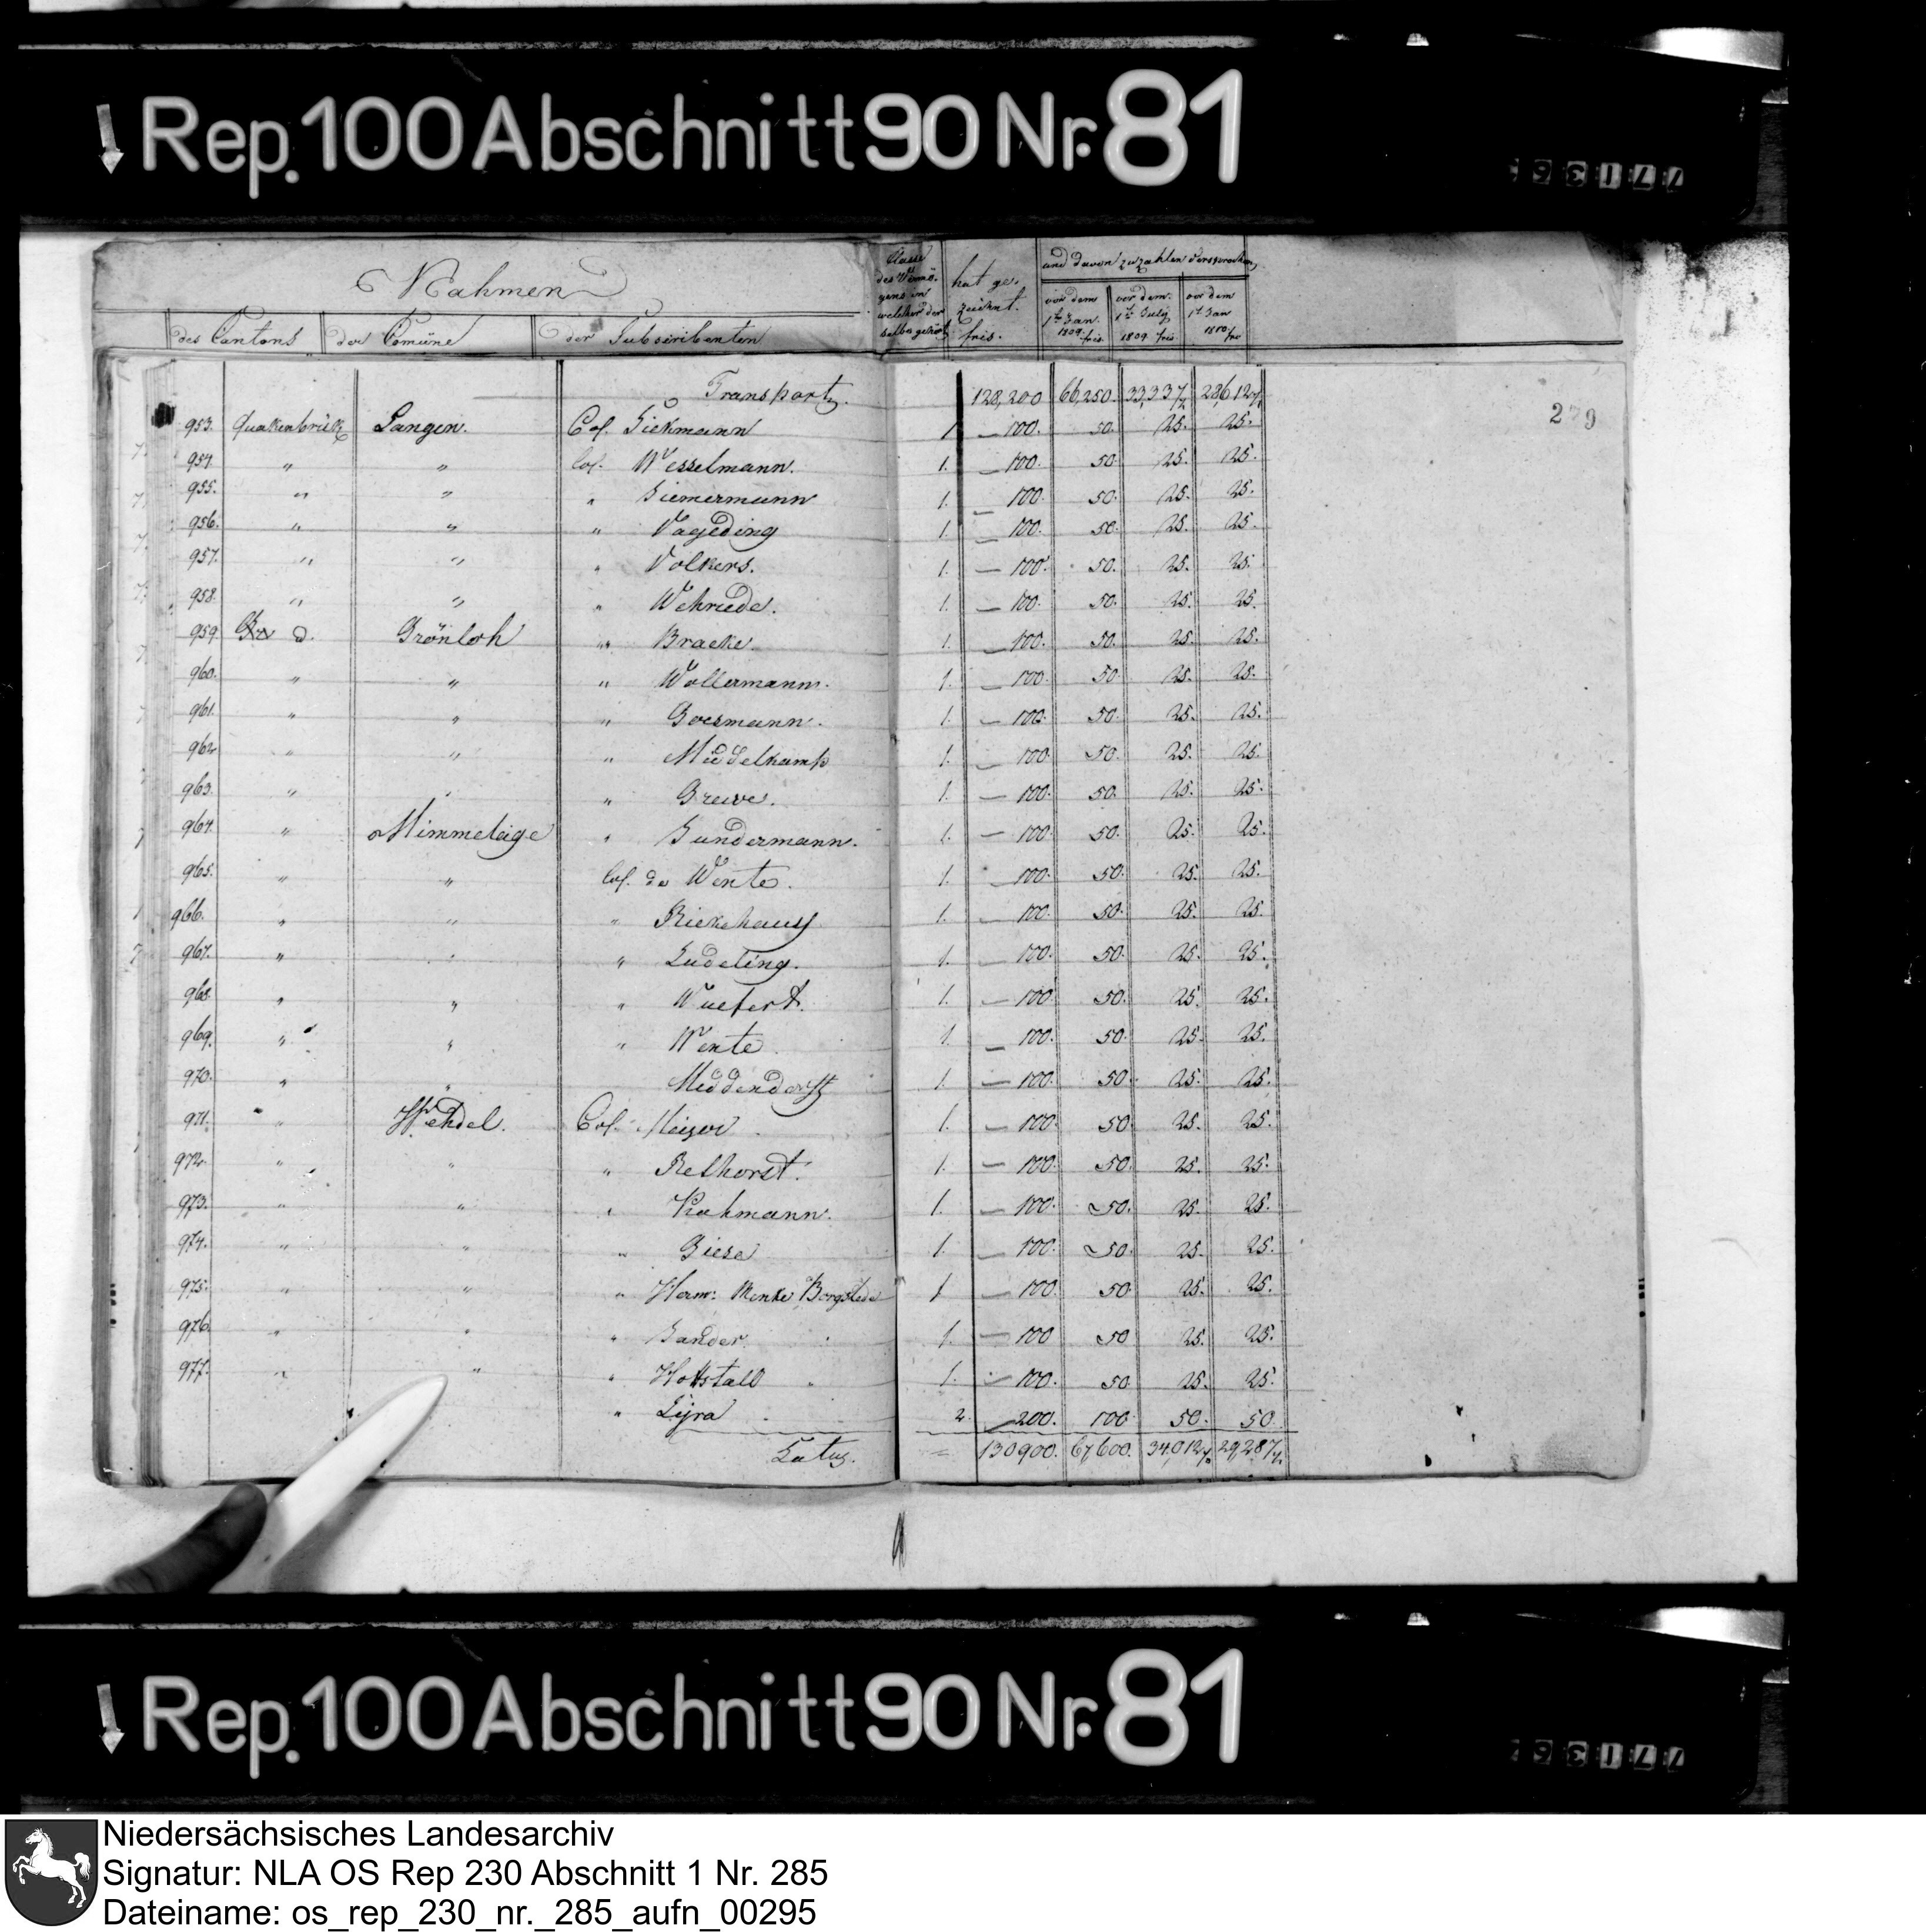 Rep. 100 Abschnitt 90 Nr. 81
Nahmen
des Cantons der Comüne der Subscribenten
Classe des Vermögens in welcher derselbe gehört
hat gezeichnet. frcs.
und davon zu zahlen versprochen
vor dem 1ten Jan. 1809. frcs.
vor dem 1ten July 1809 frcs
vor dem 1t Jan 1810 frc
279
Transport. 128,200 66,250. 33,337½ 28,612½
953. Quakenbrück Langen. Col. Siekmann 1 — 100. 50. 25. 25.
954. " " Col. Wesselmann. 1. — 100. 50. 25. 25.
955. " " " Siemermann 1. — 100. 50. 25. 25.
956. " " " Vageding 1. — 100. 50. 25. 25.
957. " " " Volkers. 1. — 100. 50. 25. 25.
958. " " " Wehriede. 1. — 100. 50. 25. 25.
959. d. Grönloh " Bracke. 1. — 100. 50. 25. 25.
960. " " " Woltermann. 1. — 100. 50. 25. 25.
961. " " " Goesmann. 1. — 100. 50. 25. 25.
962. " " " Middelkamp 1. — 100. 50. 25. 25.
963. " " " Greve. 1. — 100. 50. 25. 25.
964. " Mimmelage " Sundermann. 1. — 100. 50. 25. 25.
965. " " Col. de Wente. 1. — 100. 50. 25. 25.
966. " " " Riekehaus 1. — 100. 50. 25. 25.
967. " " " Ludeling. 1. — 100. 50. 25. 25.
968. " " " Wuefert. 1. — 100. 50. 25. 25.
969. " " " Wente 1. — 100. 50. 25. 25.
970. " " Middendorff 1. — 100. 50. 25. 25.
971. " Wehdel. Col. Meiyer 1. — 100. 50. 25. 25.
972. " " " Relhorst. 1. — 100. 50. 25. 25.
973. " " " Kahmann. 1. — 100. 50. 25. 25.
974. " " " Giese 1. — 100. 50. 25. 25.
975. " " " Herm: Menke Borgstede 1. — 100. 50. 25. 25.
976. " " " Sander. 1. — 100 50 25. 25.
977. " " " Hottstall 1. — 100. 50 25. 25.
" Lyra 2. 200. 100 50. 50.
Latus. 130900. 67,600. 34,012½ 29,287½
Rep. 100 Abschnitt 90 Nr. 81
Niedersächsisches Landesarchiv
Signatur: NLA OS Rep 230 Abschnitt 1 Nr. 285
Dateiname: os_rep_230_nr._285_aufn_00295